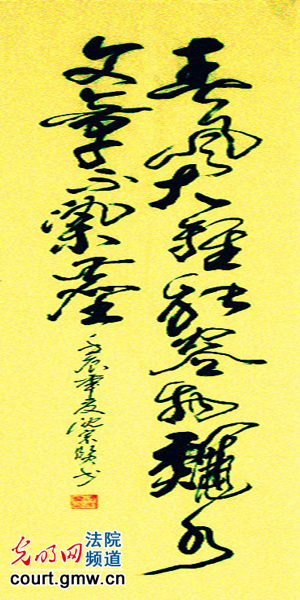 春風大雅能容物龝水
文章不染塵
光明网 法院频道
court.gmw.cn